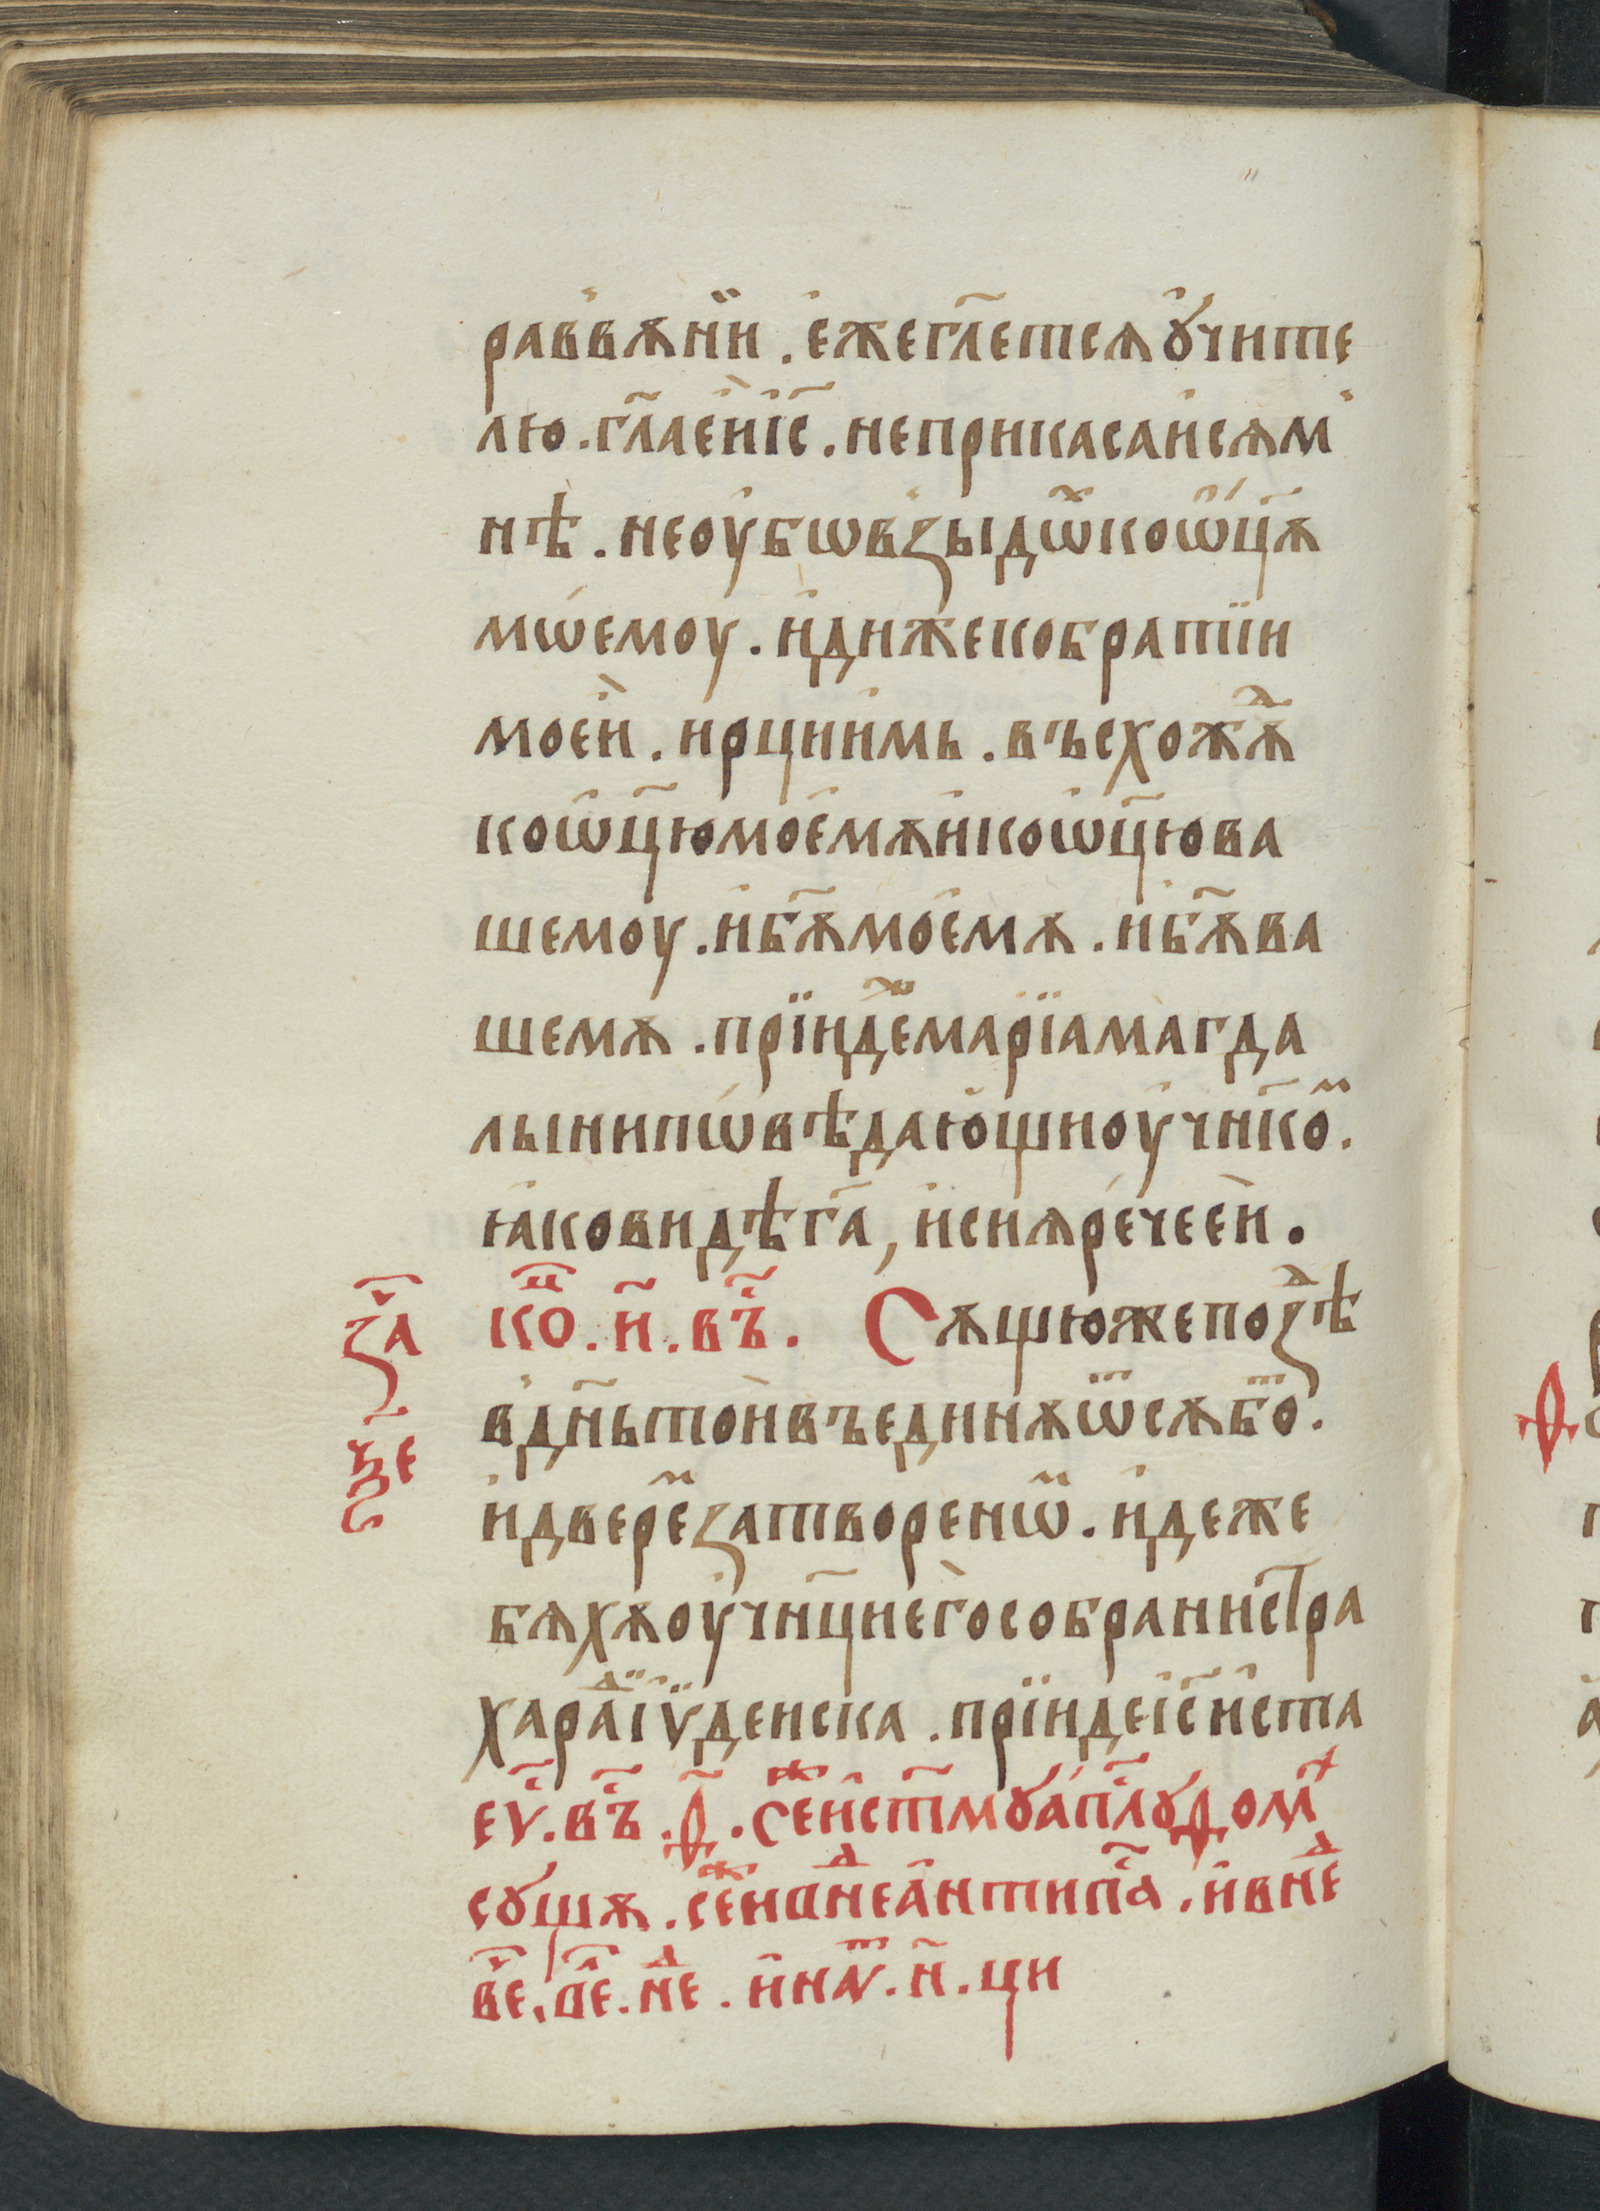 раввѫнїи . е҆жегл҃етсѧѹ҆чите
лю . гл҃аеі҆̀іс҃ . неприкасаисѧм
нѣ . неоу҆бѡвꙁыдѡⷯкоѡ҆ц҃ѫ
мѡемоу . и҆дижекобратїи
моеи҆̀ . ирциимь . въсхожѫⷣ
коѡ҆ц҃юмоемѫи҆коѡ҆ц҃юва
шемоу . и҆бг҃ѫмоемѫ . ибг҃ѫва
шемѫ . прїидⷤемарїамагда
лынипѡвѣдающиоу҆чн҃коⷨ .
ꙗ҆ковидѣга҃ , и҆сиѧречееи҆̀ .
коⷰ҇ . и҃ . въⷭ҇ . Сѫщюжепоꙁⷣѣ
вд҃ньтои҆̀въединѫѿсѫбоⷮ .
и҆двереⷨꙁатворенѡⷨ . и҆деже
бѧхѫоу҆чн҃циегѻ҆̀собранистра
хараⷣїѵ҆деиска . прїидеіс҃и҆ста
еѵⷢ҇ . въⷭ҇ . ҂ . сеⷤи҆ст҃мѹапⷭ҇лѹѳомⷷ
сѹщѫ . сеⷤидн҃еⷣа҆нтипⷭ҇а . и҆внеⷣ
веⷱ҇ , деⷧ҇ . неⷣ . и҆наⷮѵ . и҃ . ци
заⷱ҇
ѯ҃е